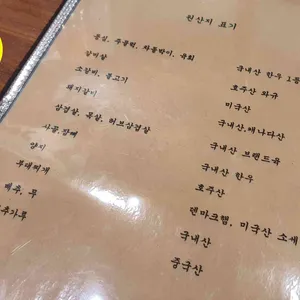 원산지 표기
꽃살, 주물럭, 차돌박이, 육회 국내산 한우 1등
갈비살 호주산 와규
소갈비, 불고기 미국산
돼지갈비 국내산, 캐나다산
삼겹살, 목살, 허브삼겹살 국내산 브랜드육
사골, 잡뼈 국내산 한우
양지 호주산
부대찌개 덴마크햄, 미국산 소세
배추, 무 국내산
추가루 중국산